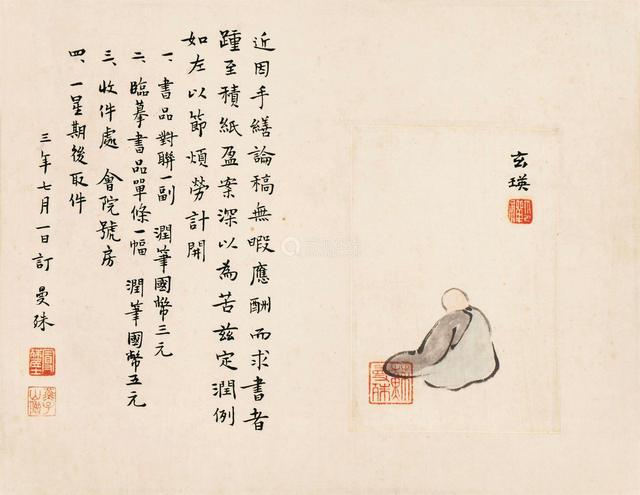 近因手繕論稿無暇應酬而求書者
踵至積紙盈案深以為苦茲定潤例
如左以節煩勞計開
一、書品對聯一副　潤筆國幣三元
二、臨摹書品單條一幅　潤筆國幣五元
三、收件處　會院號房
四、一星期後取件
三年七月一日訂　曼殊
玄瑛